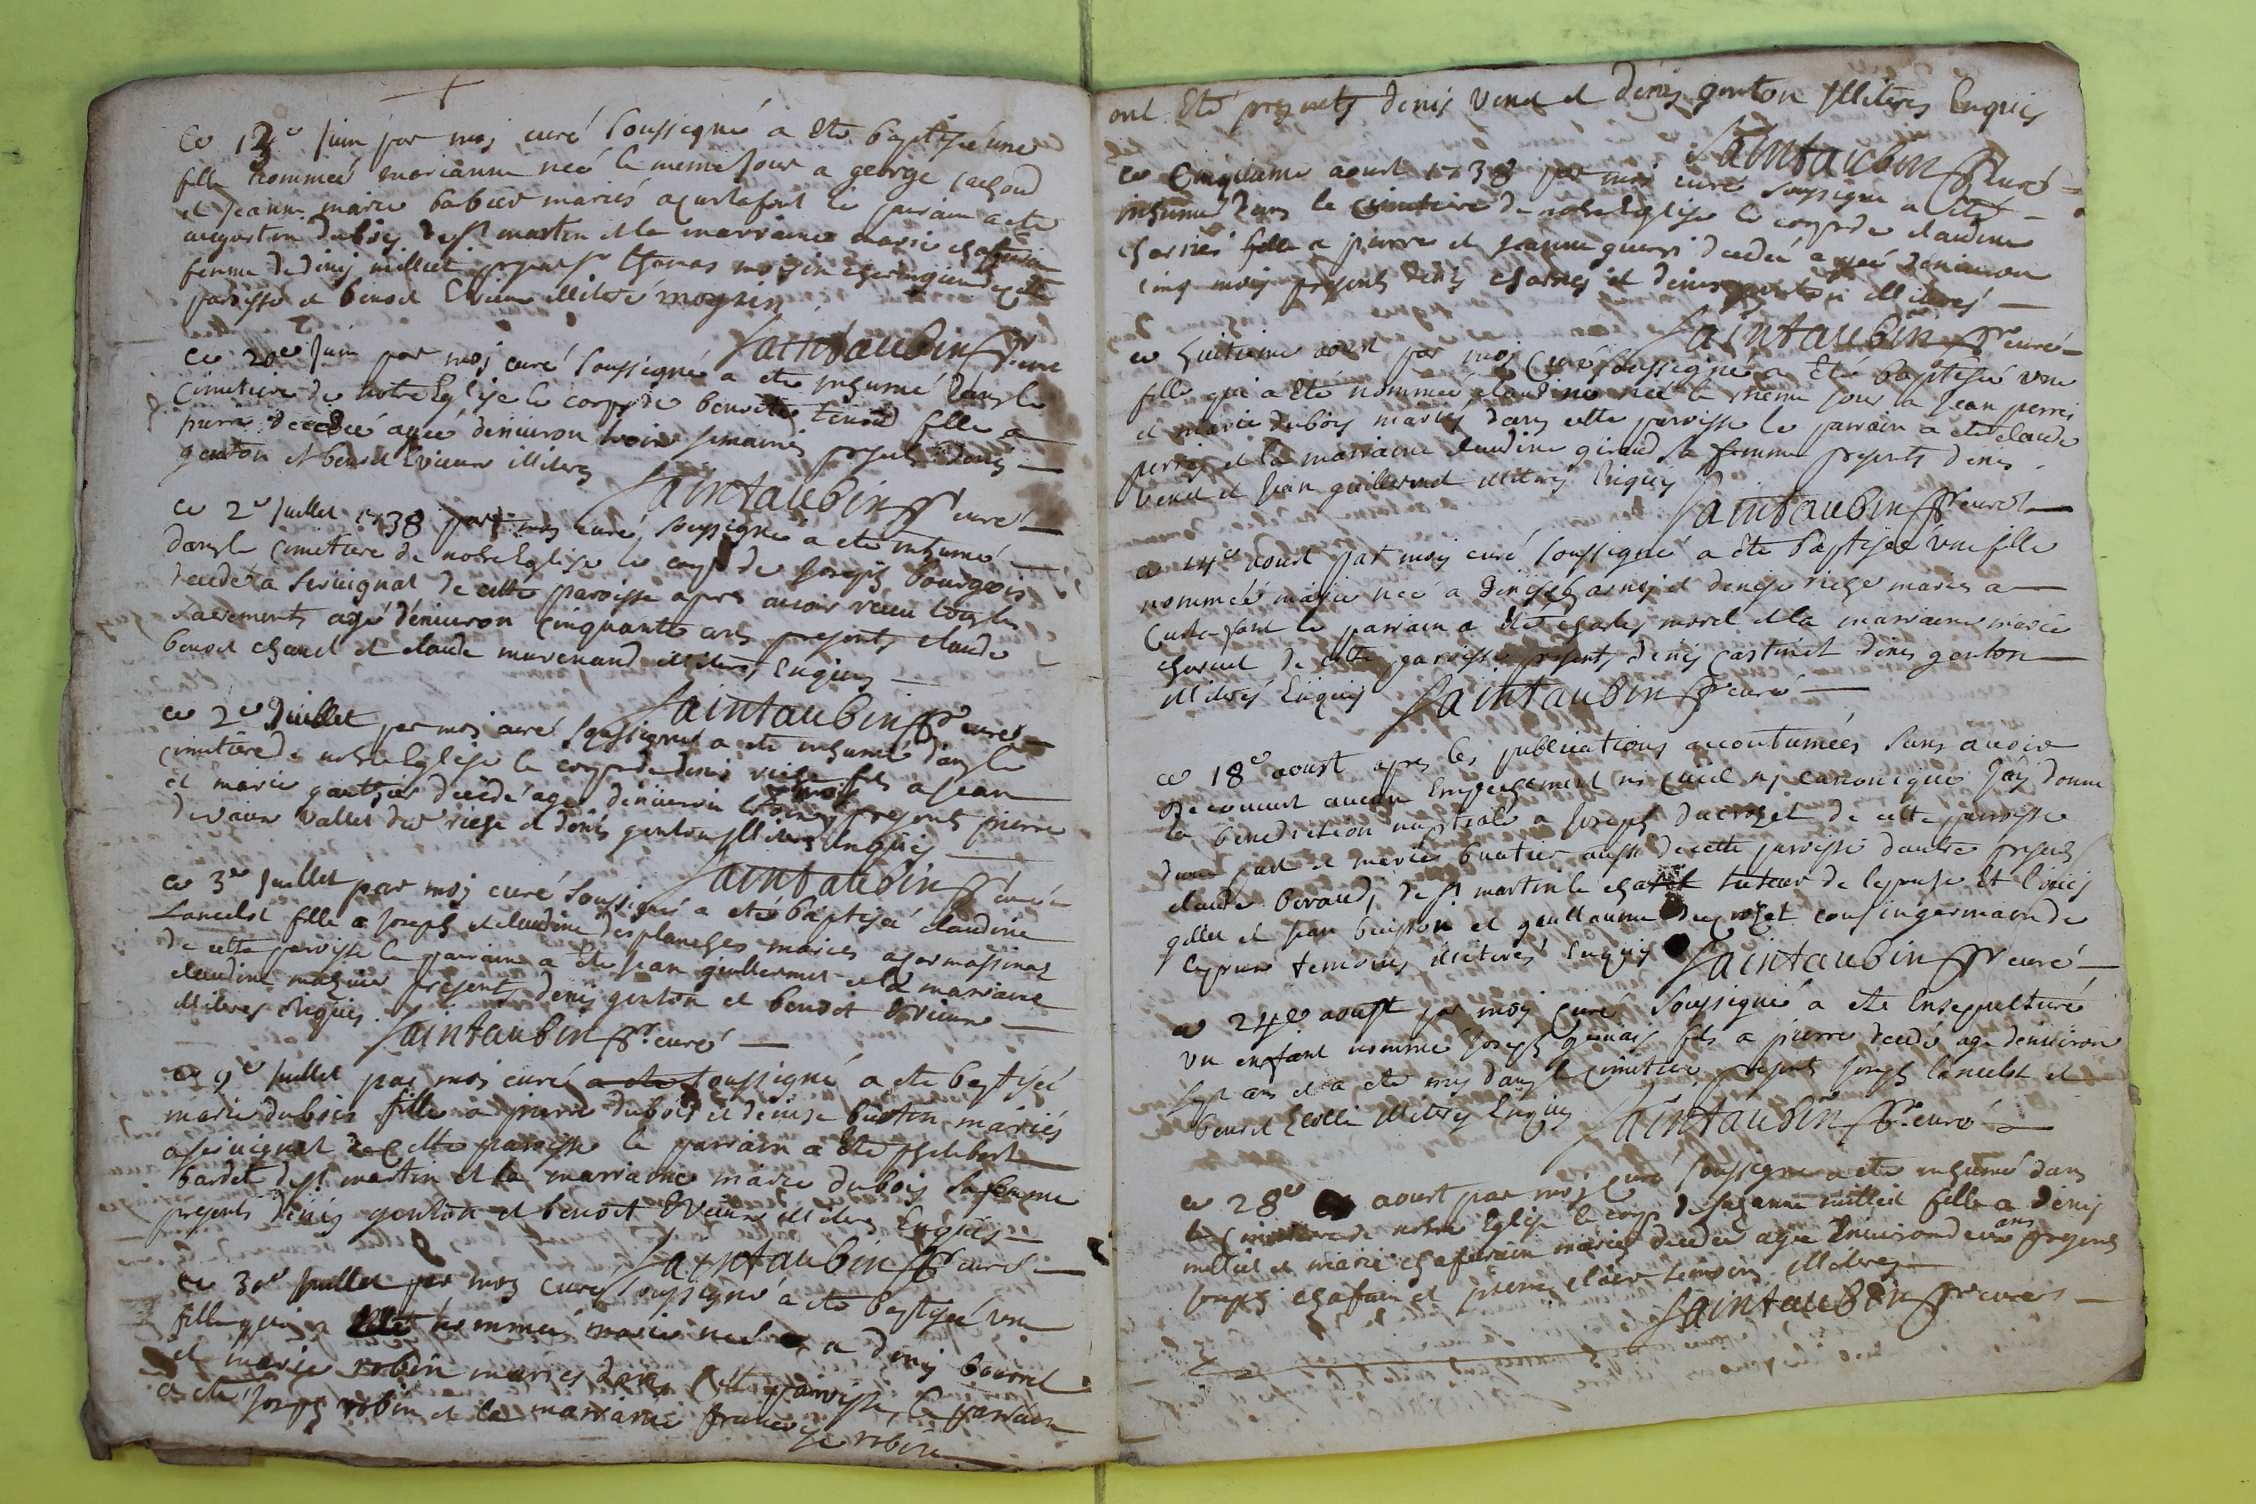 ce 12e juin par moj curé soussigné a ete baptiséé une
fille nommeé marianne neé le meme jour a george
et jeanne marie babier mariés a curtafort le parain a ete
augustin dubois de st martin et la marraine marie chafurin
femme de denis milliet presents thomas mogin chirurgien de cette
paroisse et benoit Evieux illiteré mogrin
Saintaubin ptre curé
ce 20e juin par moj curé soussigné a ete inhumé dans le
cimetiere de notre Eglise le corps de benoite fille a
pierre decedéé ageé denuiron trois semaines presents denis
genton et benoit Evieux illiteres
Saintaubin ptre curé
ce 2e juillet 1738 par moj curé soussigné a ete inhumé
dans le cimetiere de notre Eglise le corps de joseph bourgeois
decedé a seruignat de cette paroisse apres auoir receu tous les
sacrements agé denuiron cinquante ans presents claude
benoit chanel et claude marenand illiteres Enquis
Saintaubin ptre curé
ce 2e Juillet par moj curé soussigné a ete inhumé dans le
cimetiere de notre Eglise le corps de denis riche fils a jean
et marie gautier decedé agé denuiron trois mois presents pierre
deuaux vallet dud riche et denis genton illiteres Enquis
Saintaubin ptre curé
ce 3e juillet par moj curé soussigné a eté baptiséé claudine
Lancelot fille a joseph et claudine desplanches mariés a carmassinas
de cette paroisse le parrain a ete jean guillermet et la marraine
claudine presents denis genton et benoit Evieux
illiteres Enquis Saintaubin ptre curé
ce 9e juillet par moj curé a ete soussigné a ete baptiséé
marie dubois fille a pierre dubois et denise buston mariés
a seruignat de cette paroisse le parrain a ete philibert
bardet de st martin et la marraine marie dubois sa femme
presents denis genton et benoit Evieux illiteres Enquis
Saintaubin ptre curé
ce 30e juillet par moj curé soussigné a ete baptiséé une
fille qui a eté nommeé marie neé a denis bourcet
et marie robin mariés dans cette paroisse, le parrain
a ete joseph robin et la marraine francoise robin
ont Eté presents denis venet et denis genton illiteres Enquis
Saintaubin ptre curé
ce cinquieme aoust 1738 par moj curé soussigné a eté
inhumé dans le cimetiere de notre Eglise le corps de claudine
charnei fille a pierre et jeanne decedéé ageé denuiron
cinq mois presents denis charnei et denis genton illiteres
Saintaubin ptre curé
ce huitieme aoust par moj curé soussigné a Eté baptiséé une
fille qui a eté nommeé claudine neé le meme jour a jean perret
et marie dubois mariés dans cette paroisse le parrain a ete claude
perret et la marraine claudine giraud sa femme presents denis
venet et jean guillermet illiteres Enquis
Saintaubin ptre curé
ce 14e aoust par moj curé soussigné a ete baptiséé une fille
nommeé marie neé a denis charnej et denise riche mariés a
Curtafont le parrain a eté charles morel et la marraine marie
charuel de cette paroisse presents denis cartin et denis genton
illiteres Enquis Saintaubin ptre curé
ce 18e aoust apres les publications accoutumées sans auoir
decouuert aucun Empechement ni ciuil nj canonique j'aj donné
la benediction nuptiale a joseph ducrozet de cette paroisse
dune part et marie buatier aussi de cette paroisse dautre presents
claude beraud, de st martin le chatel tuteur de lepouse Et
gillet et jean buisson et guillaume ducrozet cousin germain de
lepoux temoins illiteres Enquis Saintaubin ptre curé
ce 24e aoust par moj curé soussigné a ete Ensepulturé
un enfant nommé joseph fils a pierre decedé agé denuiron
sept ans et a ete mis dans le cimetiere presents joseph lancelot et
benoit illiteres Enquis Saintaubin ptre curé
ce 28e aoust par moj curé soussigné a ete inhumé dans
le cimetiere de notre Eglise le corps de suzanne milliet fille a denis
milliet et marie chafurin mariés decedéé ageé Enuiron deux ans presents
joseph chafurin et pierre temoins illiteres
Saintaubin ptre curé